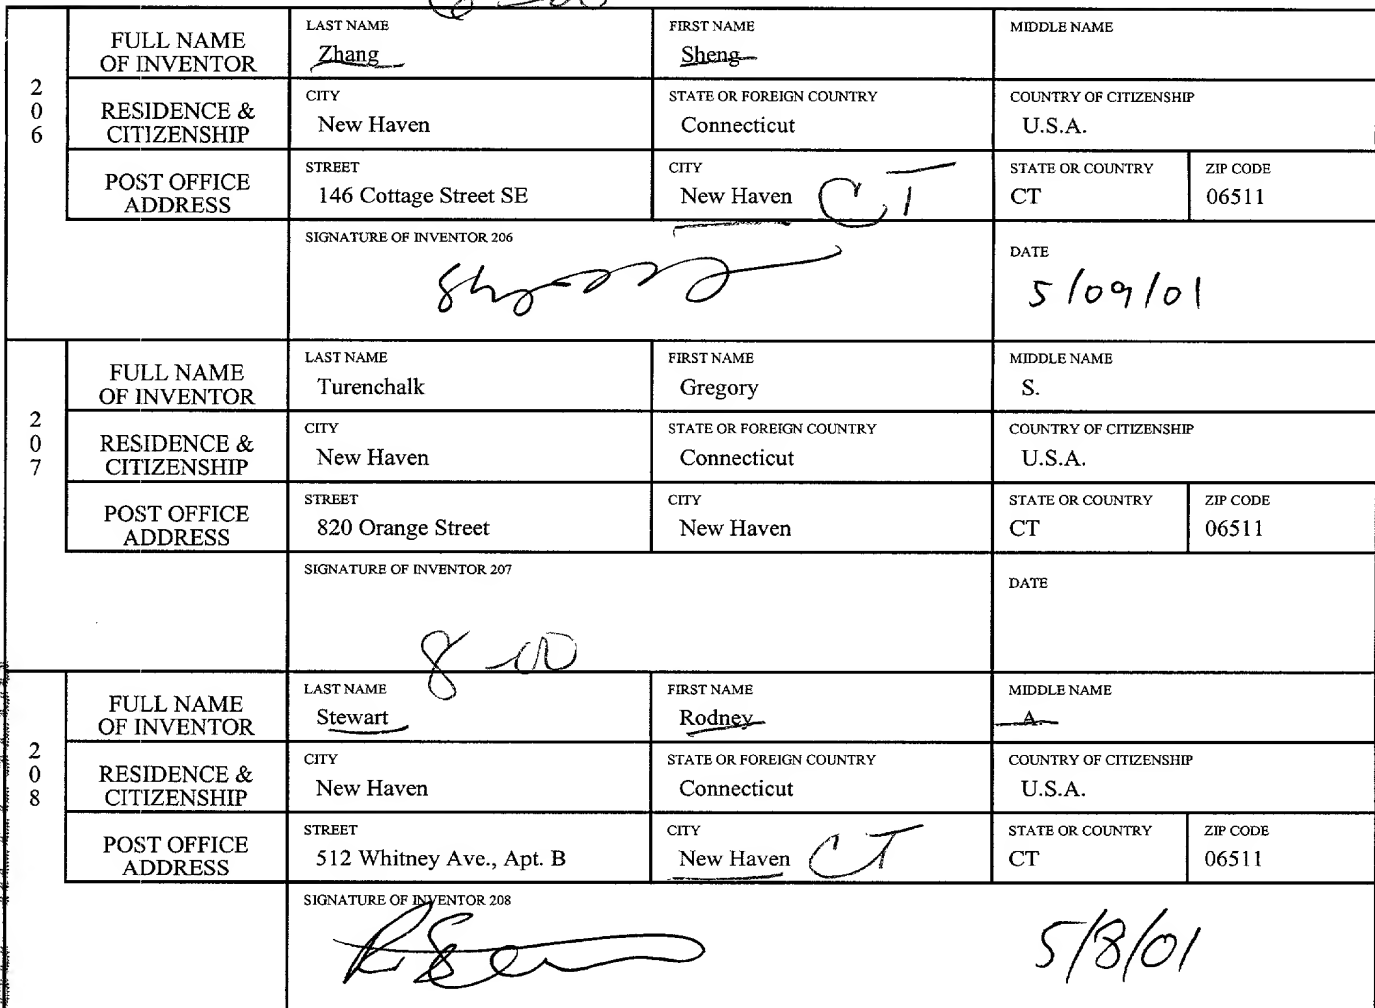 2
0
6
FULL NAME
OF INVENTOR
LAST NAME
Zhang
FIRST NAME
Sheng
MIDDLE NAME
RESIDENCE &
CITIZENSHIP
CITY
New Haven
STATE OR FOREIGN COUNTRY
Connecticut
COUNTRY OF CITIZENSHIP
U.S.A.
POST OFFICE
ADDRESS
STREET
146 Cottage Street SE
CITY
New Haven CT
STATE OR COUNTRY
CT
ZIP CODE
06511
SIGNATURE OF INVENTOR 206
DATE
5/09/01
2
0
7
FULL NAME
OF INVENTOR
LAST NAME
Turenchalk
FIRST NAME
Gregory
MIDDLE NAME
S.
RESIDENCE &
CITIZENSHIP
CITY
New Haven
STATE OR FOREIGN COUNTRY
Connecticut
COUNTRY OF CITIZENSHIP
U.S.A.
POST OFFICE
ADDRESS
STREET
820 Orange Street
CITY
New Haven
STATE OR COUNTRY
CT
ZIP CODE
06511
SIGNATURE OF INVENTOR 207
DATE
8-00
2
0
8
FULL NAME
OF INVENTOR
LAST NAME
Stewart
FIRST NAME
Rodney
MIDDLE NAME
A.
RESIDENCE &
CITIZENSHIP
CITY
New Haven
STATE OR FOREIGN COUNTRY
Connecticut
COUNTRY OF CITIZENSHIP
U.S.A.
POST OFFICE
ADDRESS
STREET
512 Whitney Ave., Apt. B
CITY
New Haven CT
STATE OR COUNTRY
CT
ZIP CODE
06511
SIGNATURE OF INVENTOR 208
5/8/01